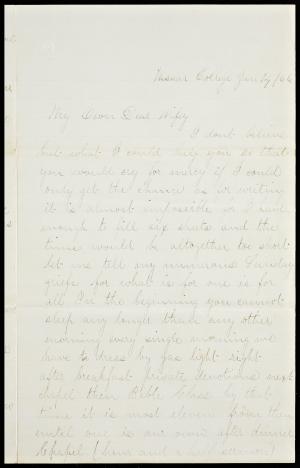 Vassar College Jan 27/66
My Own Dear Wifey
I dont believe
but what I could use you so that
you would cry for mercy if I could
only get the chance as for writing
it is almost impossible for I have
enough to fill six sheets and the
time would be altogether too short
let me tell my numerous Sunday
griefs for what is for one is for
all In the beginning you cannot
sleep any longer than any other
morning every single morning we
have to dress by gas light right
after breakfast private devotions next
chapel then Bible Class by that
time it is most eleven from then
until one is our own after dinner
Chapel (hour and a half sermon)